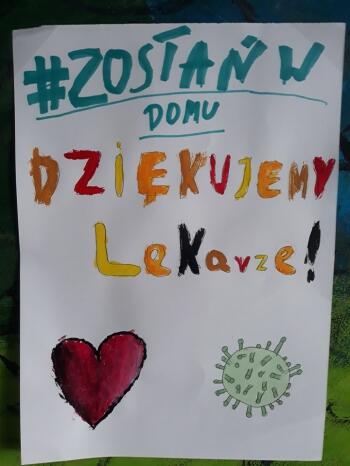 #ZOSTAŃ W
DOMU
DZIĘKUJEMY
LeKarze!